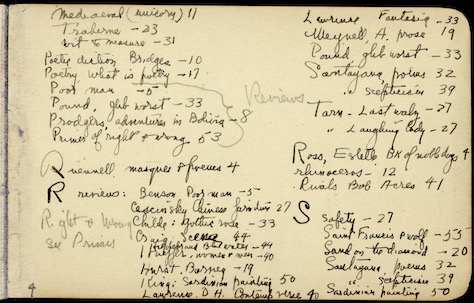 Mediaeval (unicorn) 11
Traherne - 23
wit to measure - 31
Poetic diction Bridges - 10
Poetry, what is poetry - 17
Poor man - 5
Pound, glub worst - 33
Prodgers, adventures in Bolivia - 8
Primer of right & wrong 53
Reviews
Quennell masques & poems 4
R reviews: Benson Poor man - 5
Chinese 27
R.ight & Wrong
see Primer
Childe: Gothic rose - 33
Craig Scene 44
44
women & over - 40
Hurst Barney - 19
King: Sardinian painting 50
Lawrence, D.H. verse 40
9
Lawrence Fantasia - 33
Meynell, A. prose 19
Pound glub worst - 33
Santayana, poems 32
" scepticism 39
Tarn - Last 27
" Laughing Lady - 27
Ross, Estelle Bk of noble dogs 4
rhinoceros - 12
Rivals Bob Acres 41
S Safety - 27
Saint Francis & wolf - 53
Sand on the diamond - 20
Santayana, poems 32
" scepticism 39
Sardinian painting 50